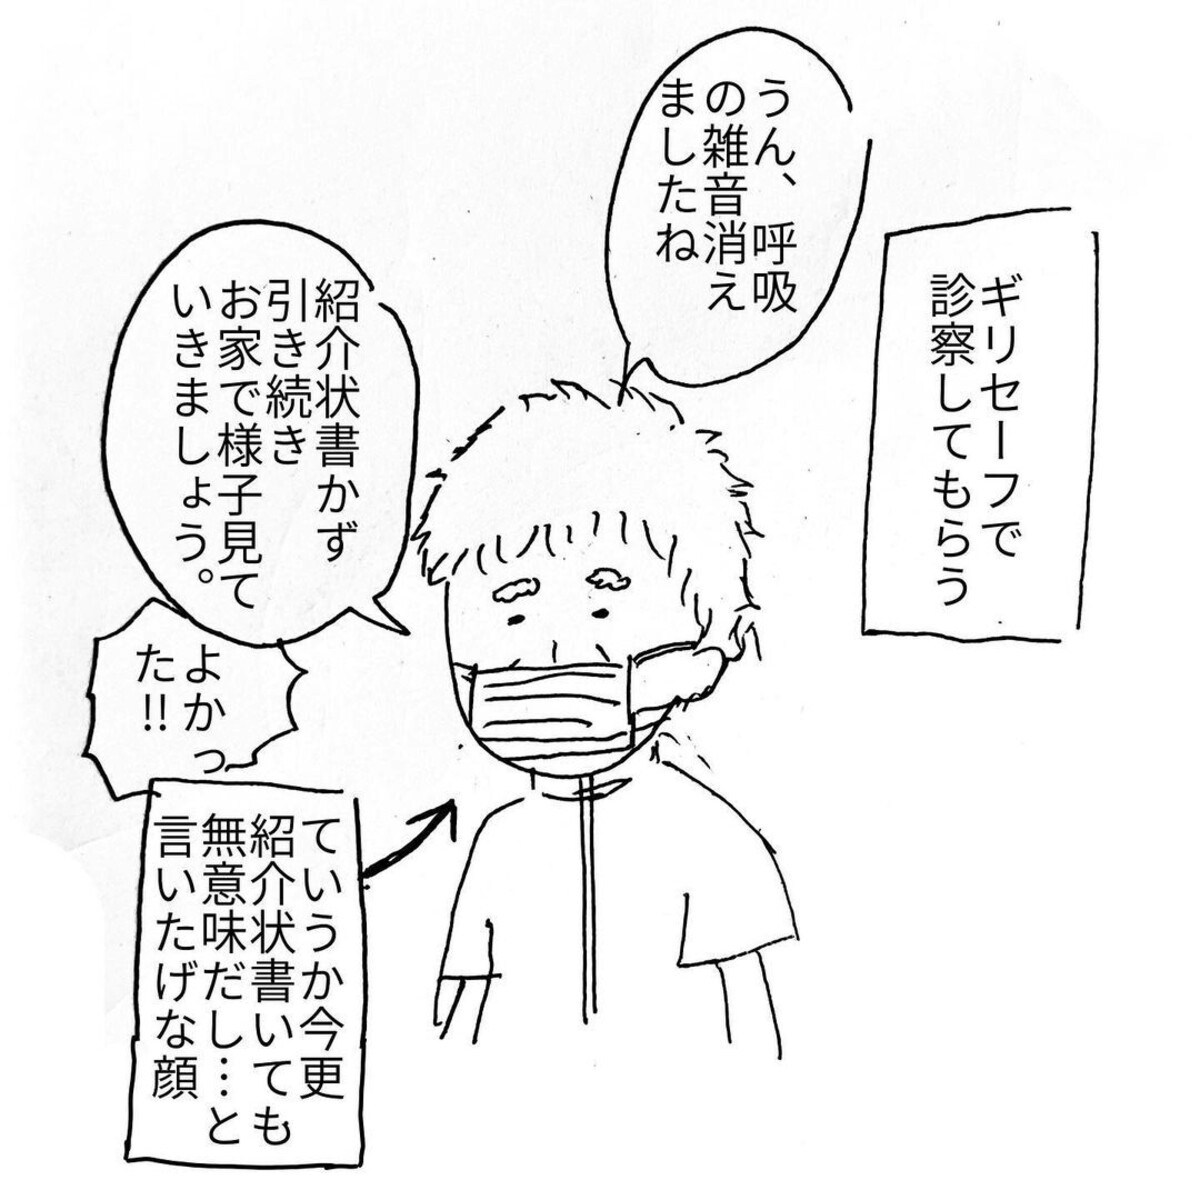 ギリセーフで
診察してもらう
うん、呼吸
の雑音消え
ましたね
紹介状書かず
引き続き
お家で様子見て
いきましょう。
よかっ
た!!
ていうか今更
紹介状書いても
無意味だし…と
言いたげな顔